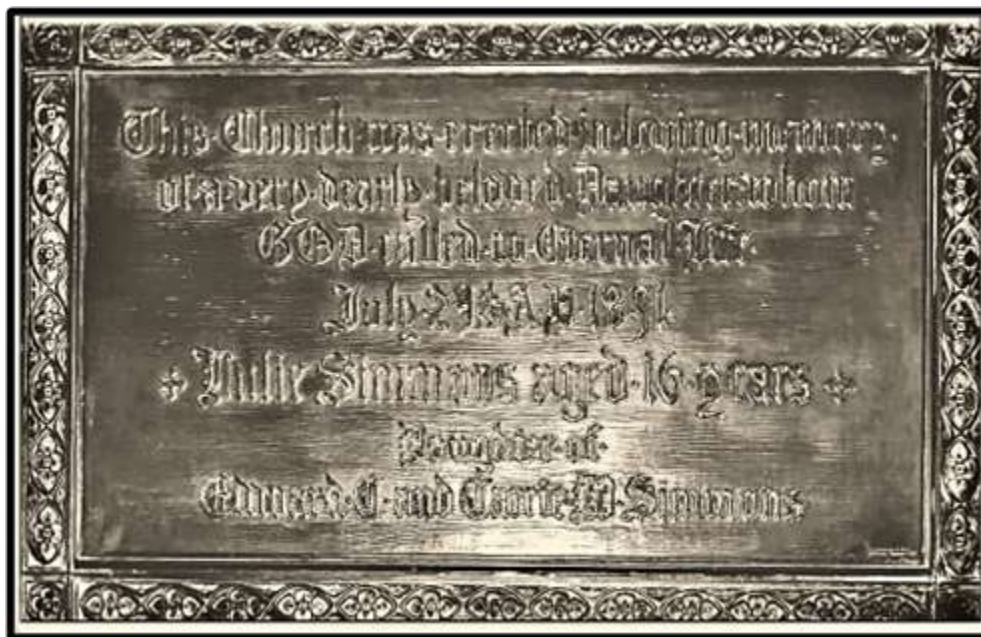 This·Church·was·erected·in·loving·memory·
of·a·very·dearly·beloved·Daughter·whom
GOD·called·to·Eternal·Life·
July· A·D·
Simmons aged·16·years
Daughter·of·
Edward·C·and Carrie·W·Simmons